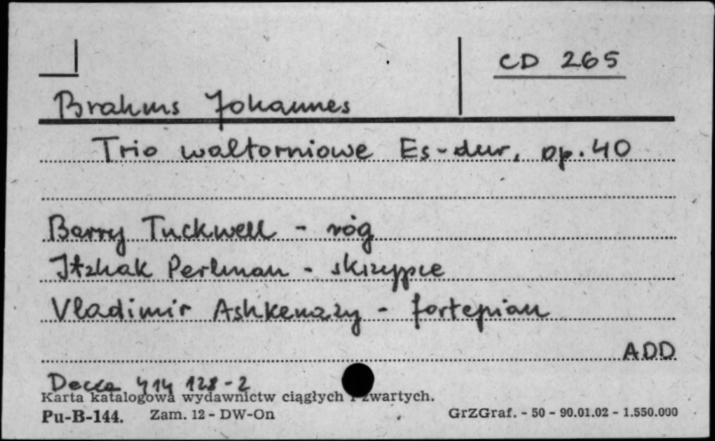 CD 265
Brahms Johannes
Trio waltorniowe Es-dur, op. 40
Barry Tuckwell - róg
Itzhak Perlman - skrzypce
Vladimir Ashkenazy - fortepian
ADD
Decca 414 128-2
Karta katalogowa wydawnictw ciągłych i zwartych.
Pu-B-144. Zam. 12 - DW-On GrZGraf. - 50 - 90.01.02 - 1.550.000